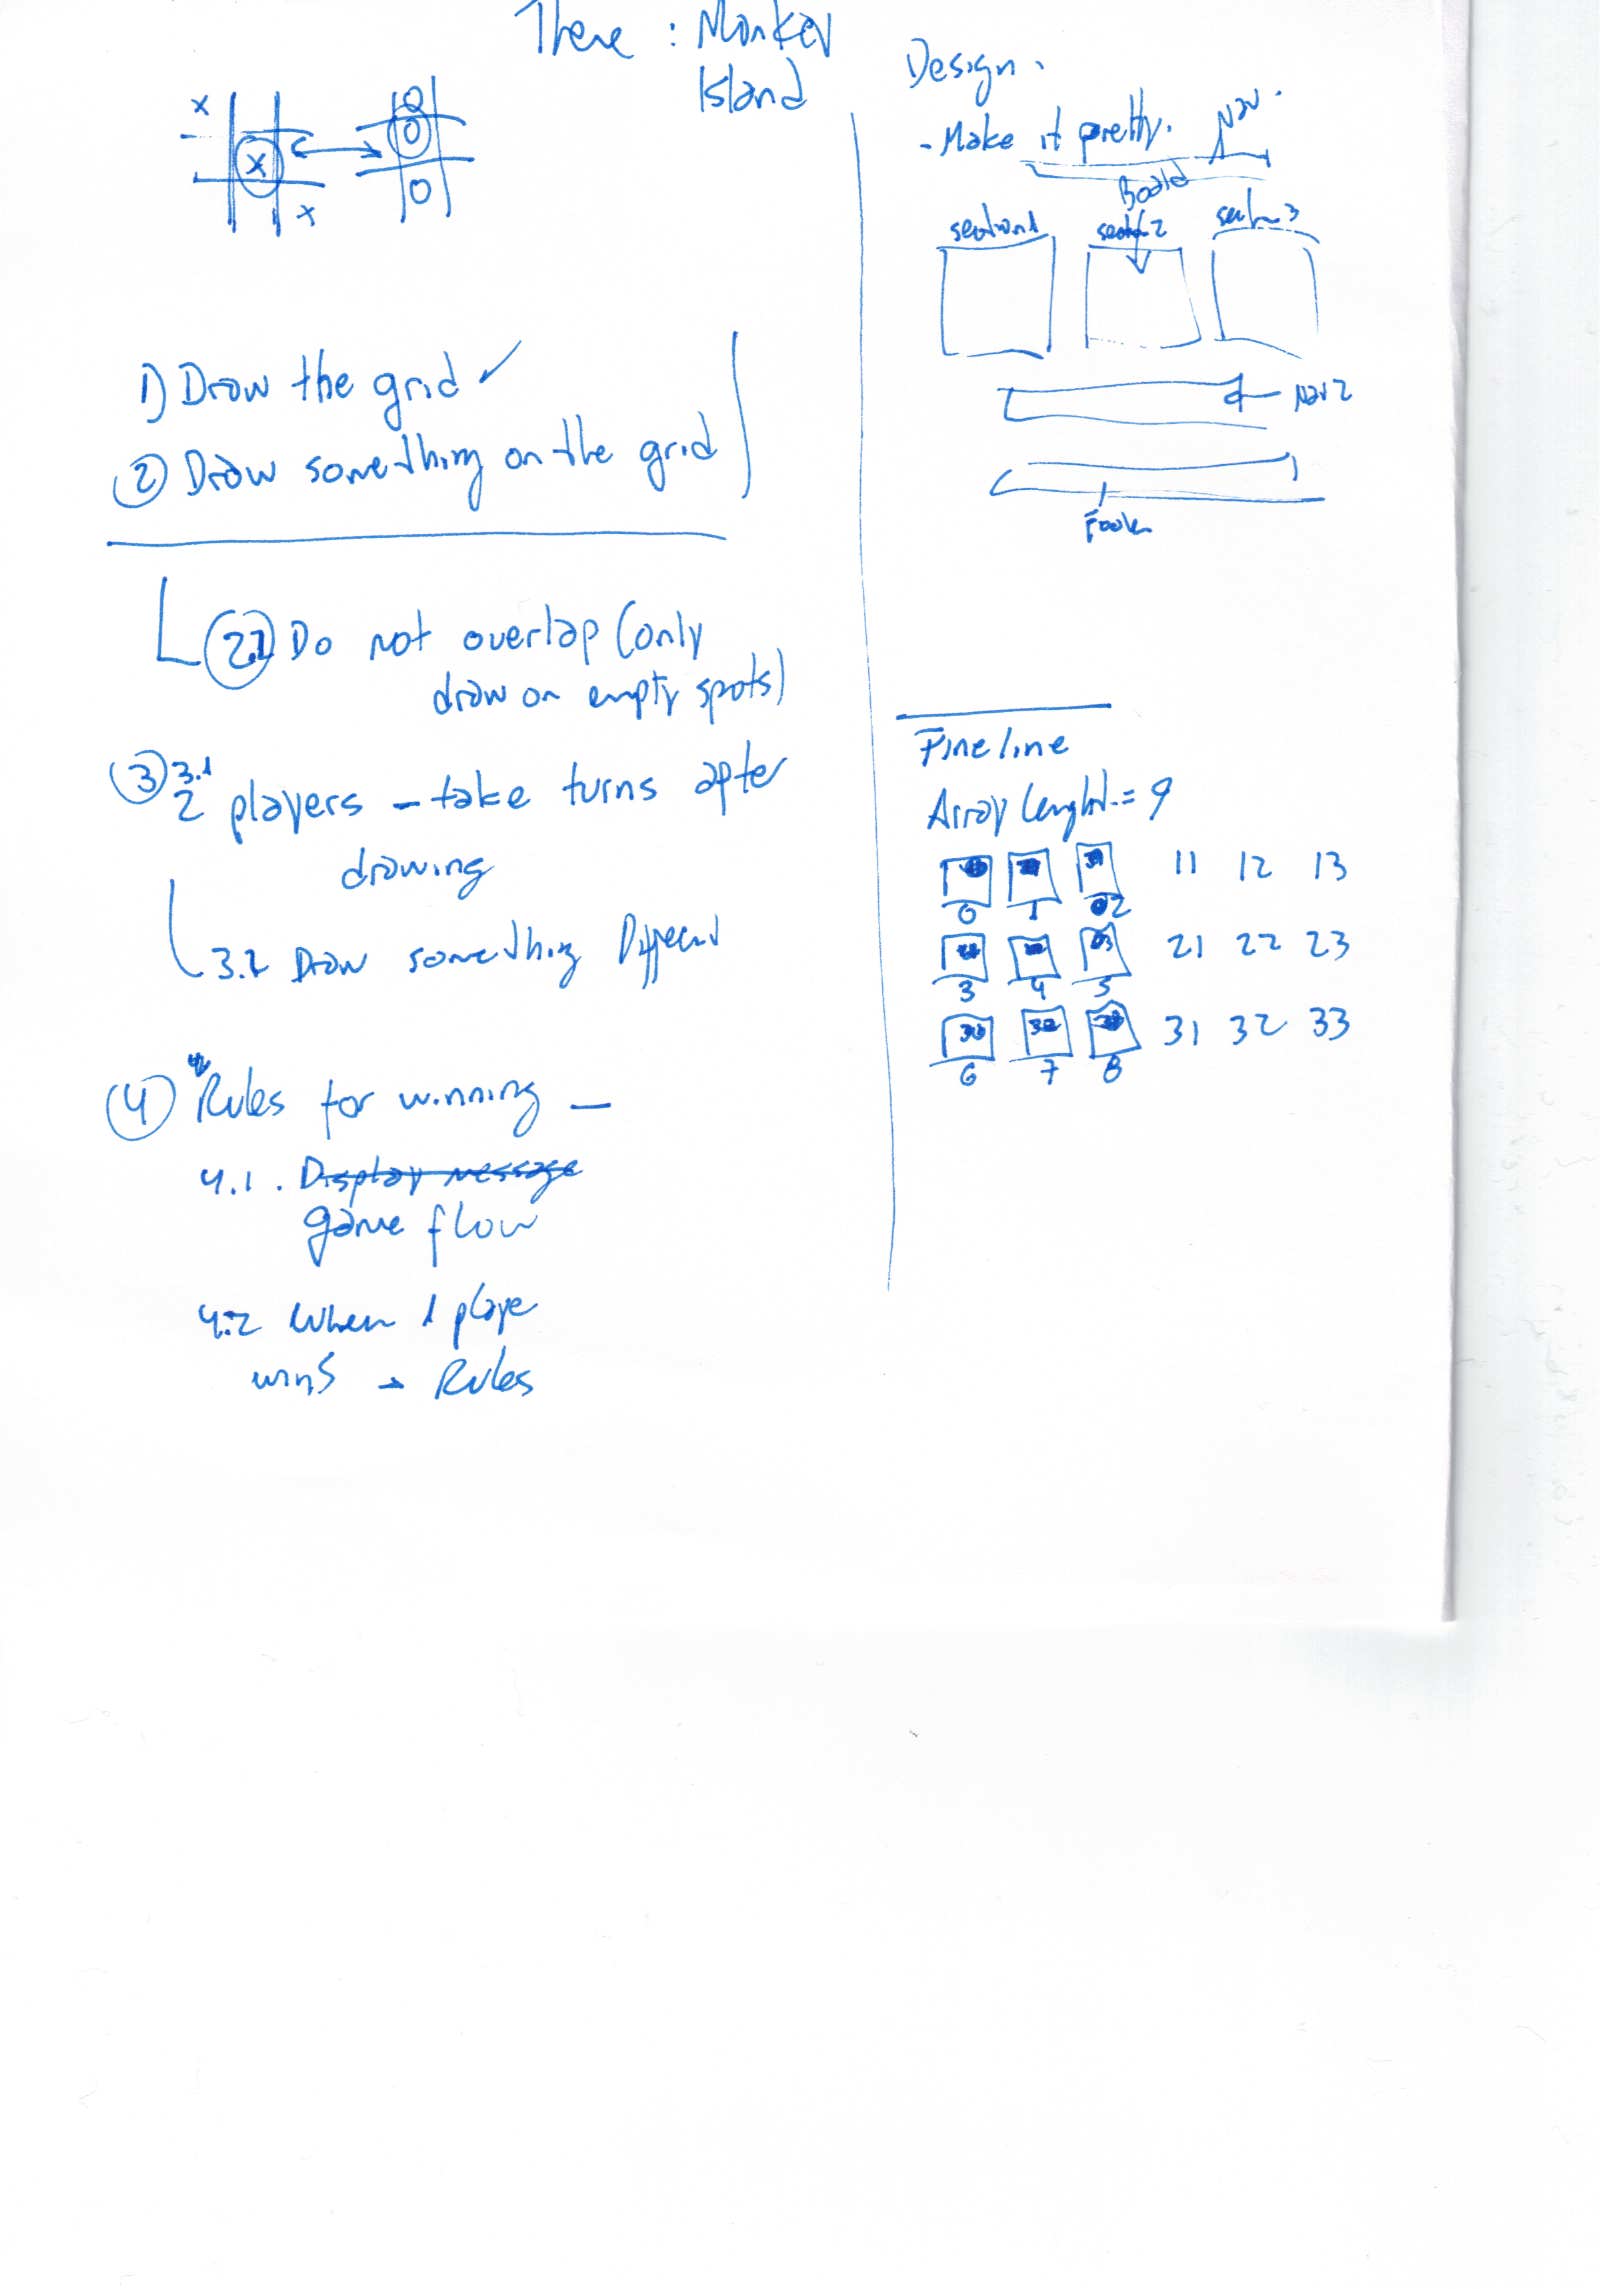 Theme : Monkey
Island
x
x
x
O
O
O
1) Draw the grid ✓
2 Draw something on the grid
2.1 Do not overlap (only
draw on empty spots)
3 3.1
2 players - take turns apter
drawing
3.2 Draw something Different
4 Rules for winning -
4.1. Display message
game flow
4.2 When 1 playe
wins - Rules
Design.
- Make it pretty.
Nav.
Board
section 1 section 2 section 3
Nav 2
Footer
Fine line
Array lenght = 9
11 12 13
0 1 2
21 22 23
3 4 5
32
31 32 33
6 7 8